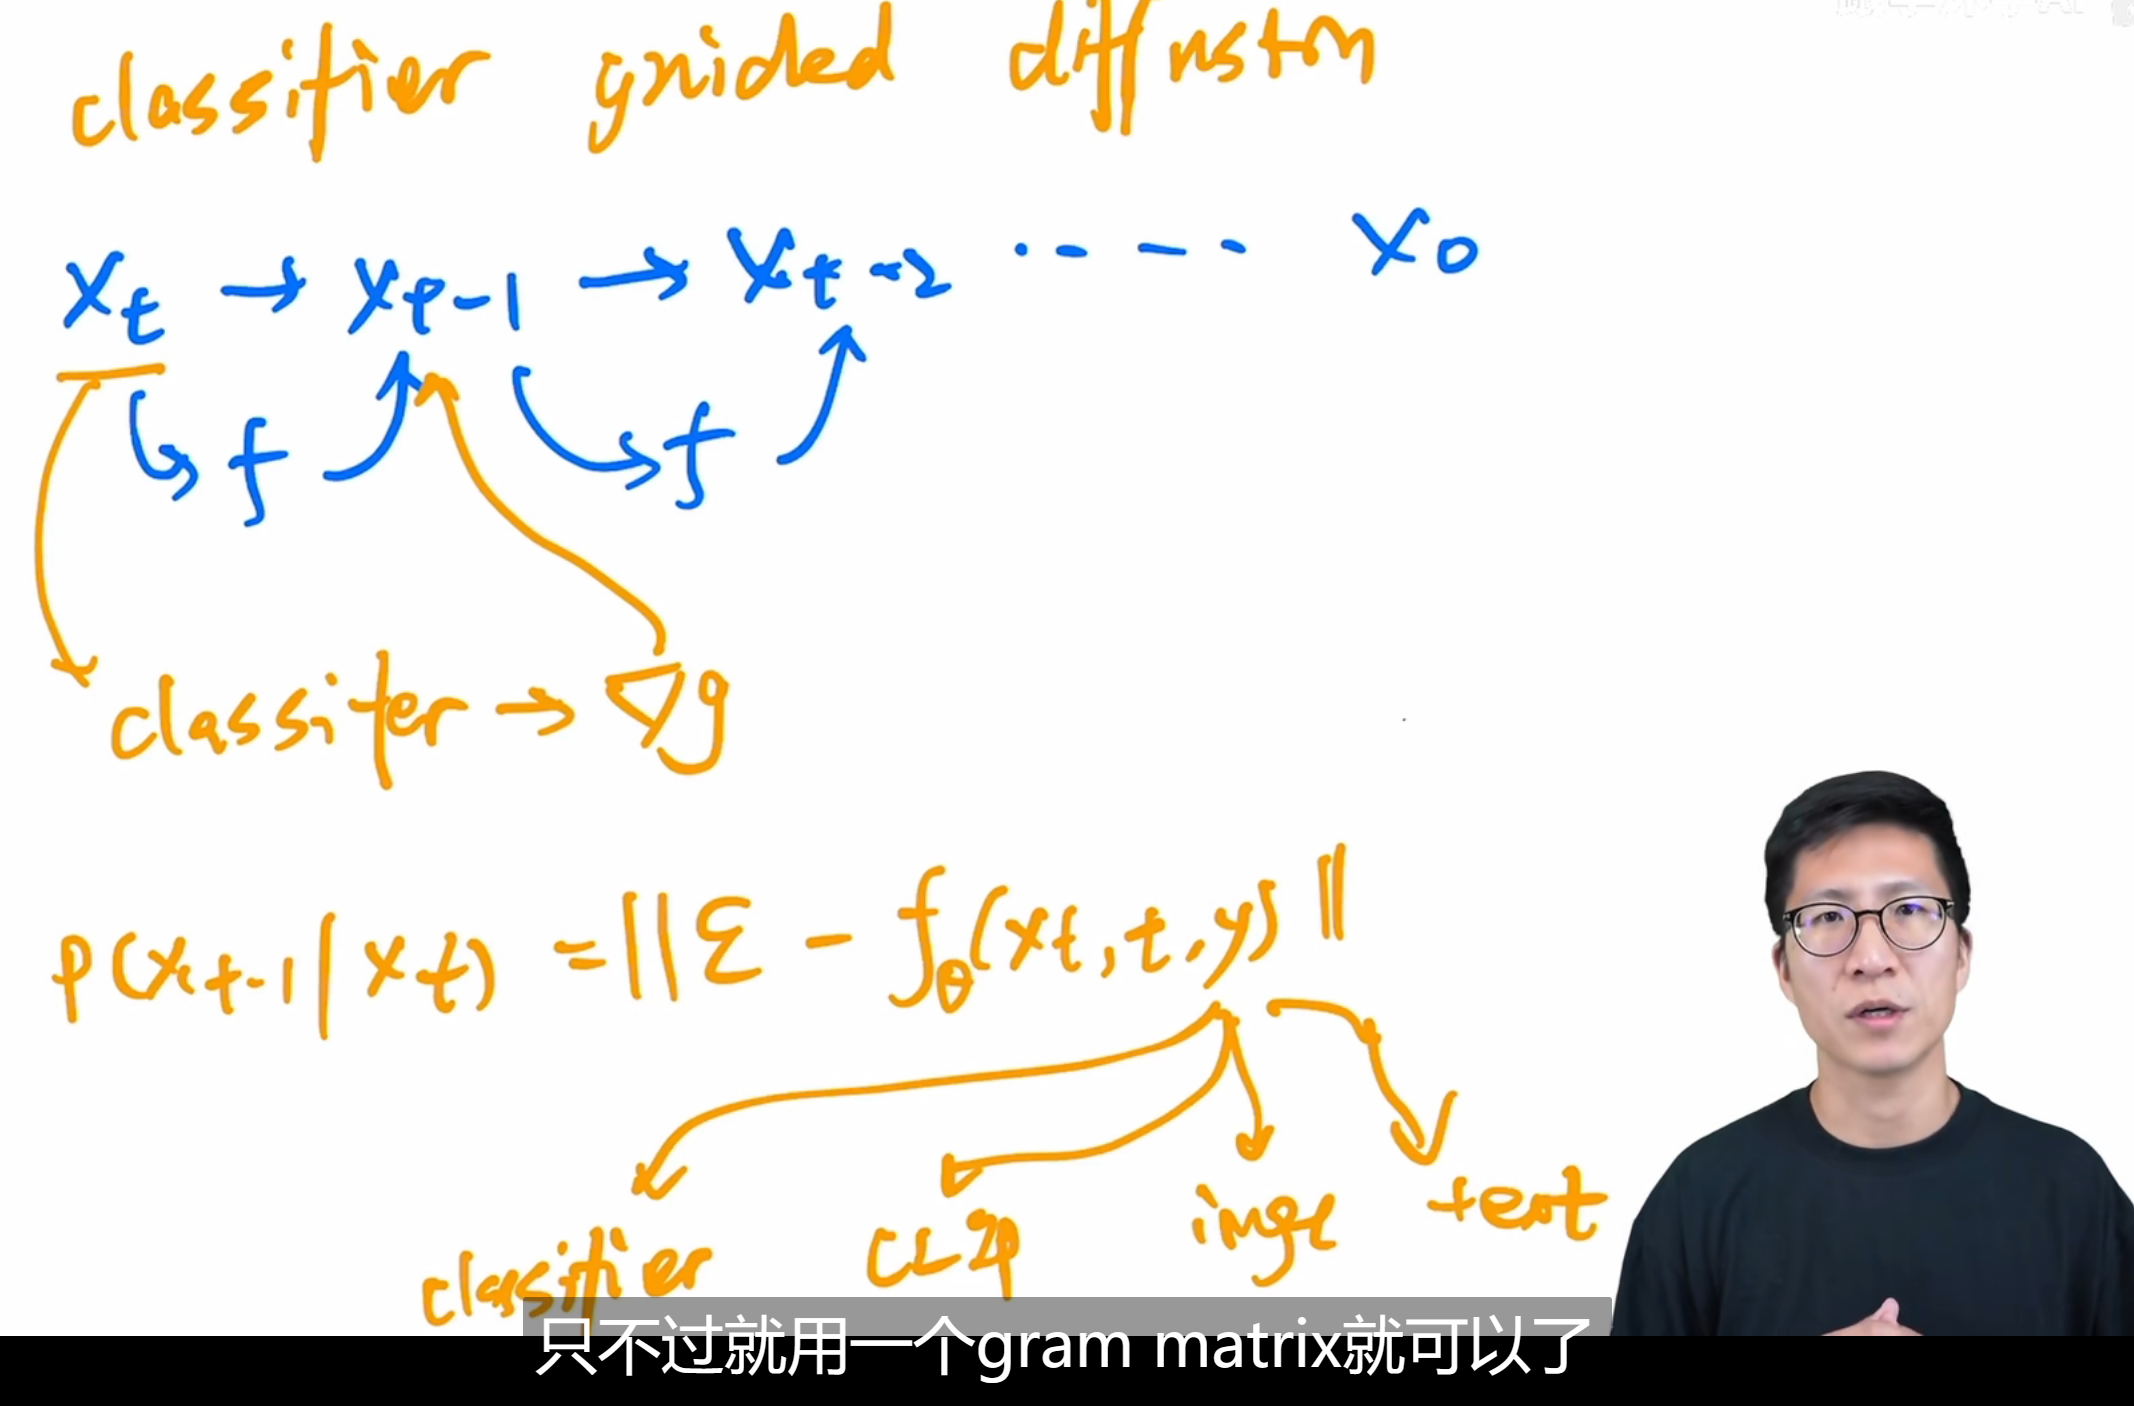 classifier guided diffusion
x_t → x_{t-1} → x_{t-2} ‥‥ x_0
f f
classifer → ∇g
p(x_{t-1} | x_t) = ||ε - f_θ(x_t, t, y)||
classifier CL2p imge text
只不过就用一个gram matrix就可以了